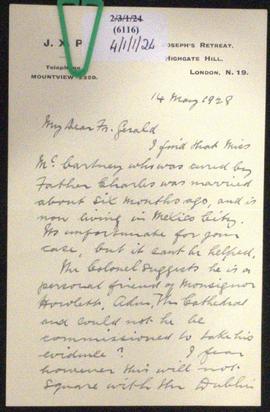 2/3/1/24
(6116)
4/1/1/24
J. X. P.
JOSEPH'S RETREAT,
HIGHGATE HILL,
Telephone
MOUNTVIEW
LONDON, N. 19.
14 May 1928
My Dear Fr. Gerald
I find that Miss
McCartney who was cured by
Father Charles was married
about Six Months ago, and is
now living in Mexico City.
Its unfortunate for your
case, but it cant be helped.
The Colonel suggests he is a
personal friend of Monsignor
Howlett, Adm, The Cathedral
and could not he be
commissioned to take his
evidence? I fear
however this will not
Square with the Dublin